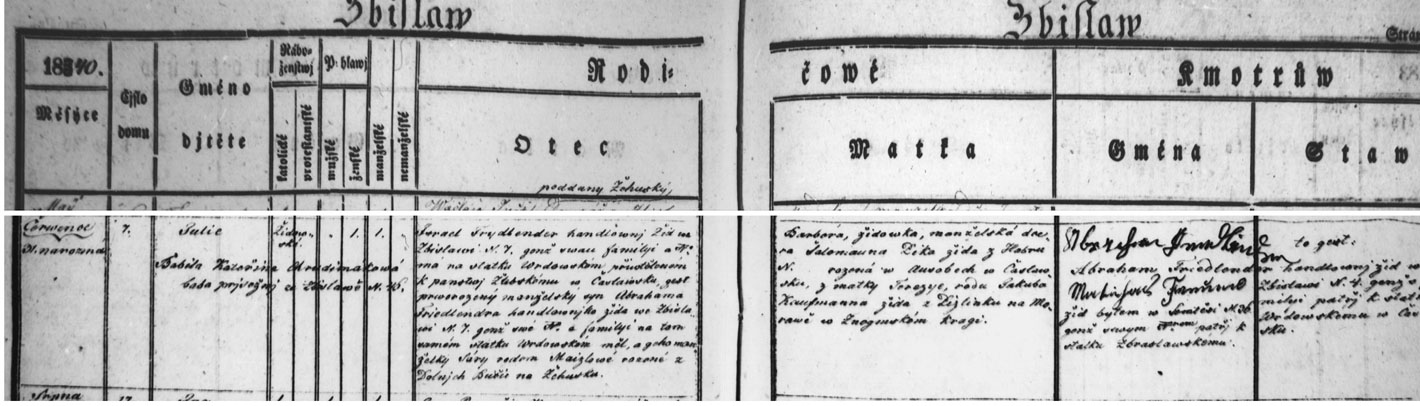 Zbislaw
Zbislaw
Strán
1840.
Měsýce
Čjslo
domu
Gméno
djtěte
Nábo-
ženstwj
katolické
protestantské
Pohlawj
mužské
ženské
manželské
nemanželské
Rodi-
čowé
Kmotrůw
Otec
Matka
Gména
Staw
poddaný Žehuský
May
Červenec
31. narozena
7.
Julie
židow-
ský.
1.
1.
Babila Kateřina Chrudimaková
baba přjsežná ze Zbislawě N. 46.
Israel Frydlender handlowný Žid we
Zbislawi N. 7. genž swau familij a N°
má na statku Wrdowském přiwtěleném
k panstwj Žlebskému w Časlawsku, gest
prworozený manželský syn Abrahama
Friedlendra handlownjka žida we Zbisla-
wi N. 7. genž swé N° a familij na tom
samém statku Wrdowském měl, a geho man-
želky Sáry rodem Maizlowé rozené z
Dolnjch Bučic na Žehusku.
Barbora, židowka, manželská dce-
ra Salomauna Žida z Habrů
N. rozená w Ausobech w Časlaw-
sku, z matky Terezye, rodu Jakuba
Kaufmanna žida z na Mo-
rawě w Znogmském kragi.
Abraham Friedlender
Mathias
žid bytem w N. 26
genž swým patřj k
statku Zbraslawskému.
to gest:
handlowný žid we
Zbislawi N. 7. genž s fa-
milij patřj k statku
Wrdowskému w Časlaw-
sku.
Srpna
17.